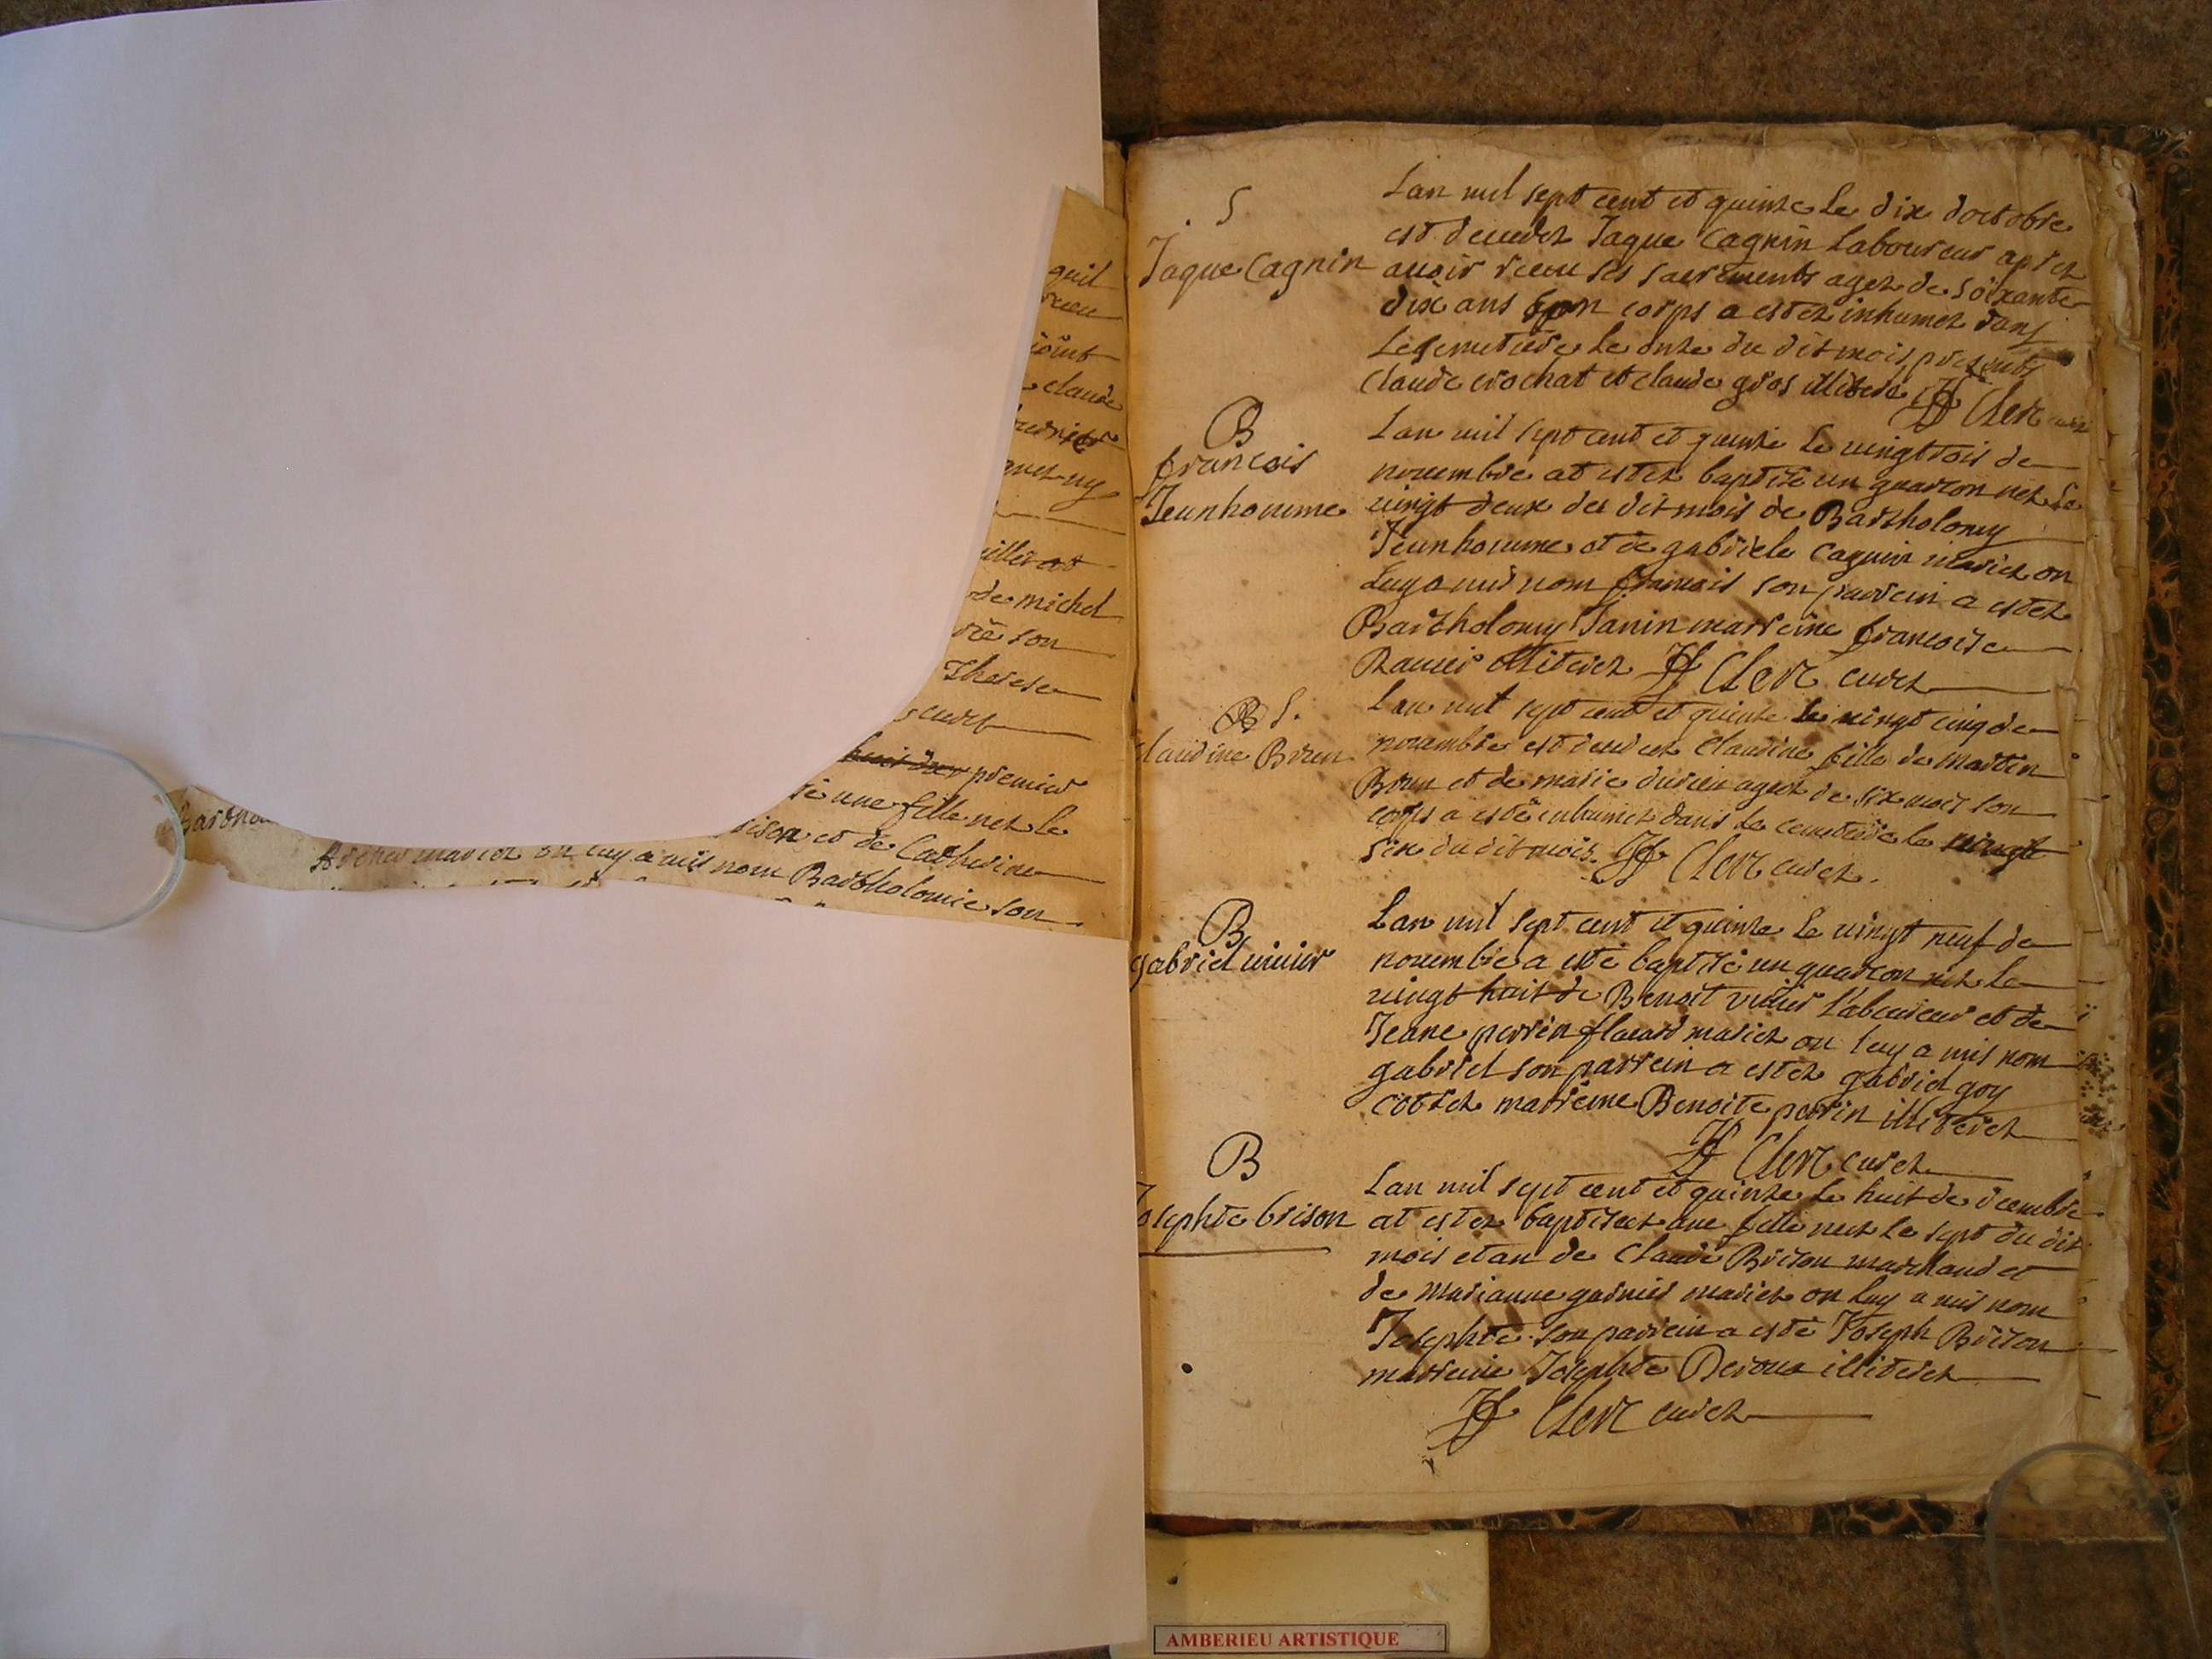 quil
claude
de michel
son
Therese
curet
premier
une fille net le
et de Catherine
mariet on luy a mis nom Bartholomie son
S
Jaque Cagnin
Lan mil sept cent et quinze le dix doctobre
est decedez Jaque Cagnin Laboureur aprez
avoir receu ses sacrements agez de soixante
dix ans son corps a estez inhumez dans
Le cemetiere le onze du dit mois presents
Claude crochat et claude gros illiterez Clerc curé
B
francois
Jeunhomme
Lan mil sept cent et quinze le vingt rois de
novembre at estez baptisé un guarcon net le
vingt deux du dit mois de Bartholomy
Jeunhomme et de gabriele Cagnin mariez on
Luy a mis nom francois son parrein a estez
Bartholomy Janin marreine francoise
Ravier illiterez Clerc curez
B S.
laudine Brun
Lan mil sept cent et quinze le vingt cinq de
novembre est decedez Claudine fille de Martin
Brun et de marie agez de six mois son
corps a esté inhumez dans le cemetiere le vingt
six du dit mois. Clerc curez.
B
gabriel vivier
Lan mil sept cent et quinze le vingt neuf de
novembre a esté baptisé un guarcon net le
vingt huit de Benoit vivier Laboureur et de
Jeane perrin flavard mariez on luy a mis nom
gabriel son parrein a estez gabriel goy
marreine Benoite perrin illiterez
Clerc curez
B
Josephte brison
Lan mil sept cent et quinze le huit de decembre
at estez baptiseez une fille neez le sept du dit
mois et an de Claude Brison marchand et
de Marianne garnier mariez on luy a mis nom
Josephte son parrein a esté Joseph Brison
marreine Josephte Deroux illiterez
Clerc curez
AMBERIEU ARTISTIQUE